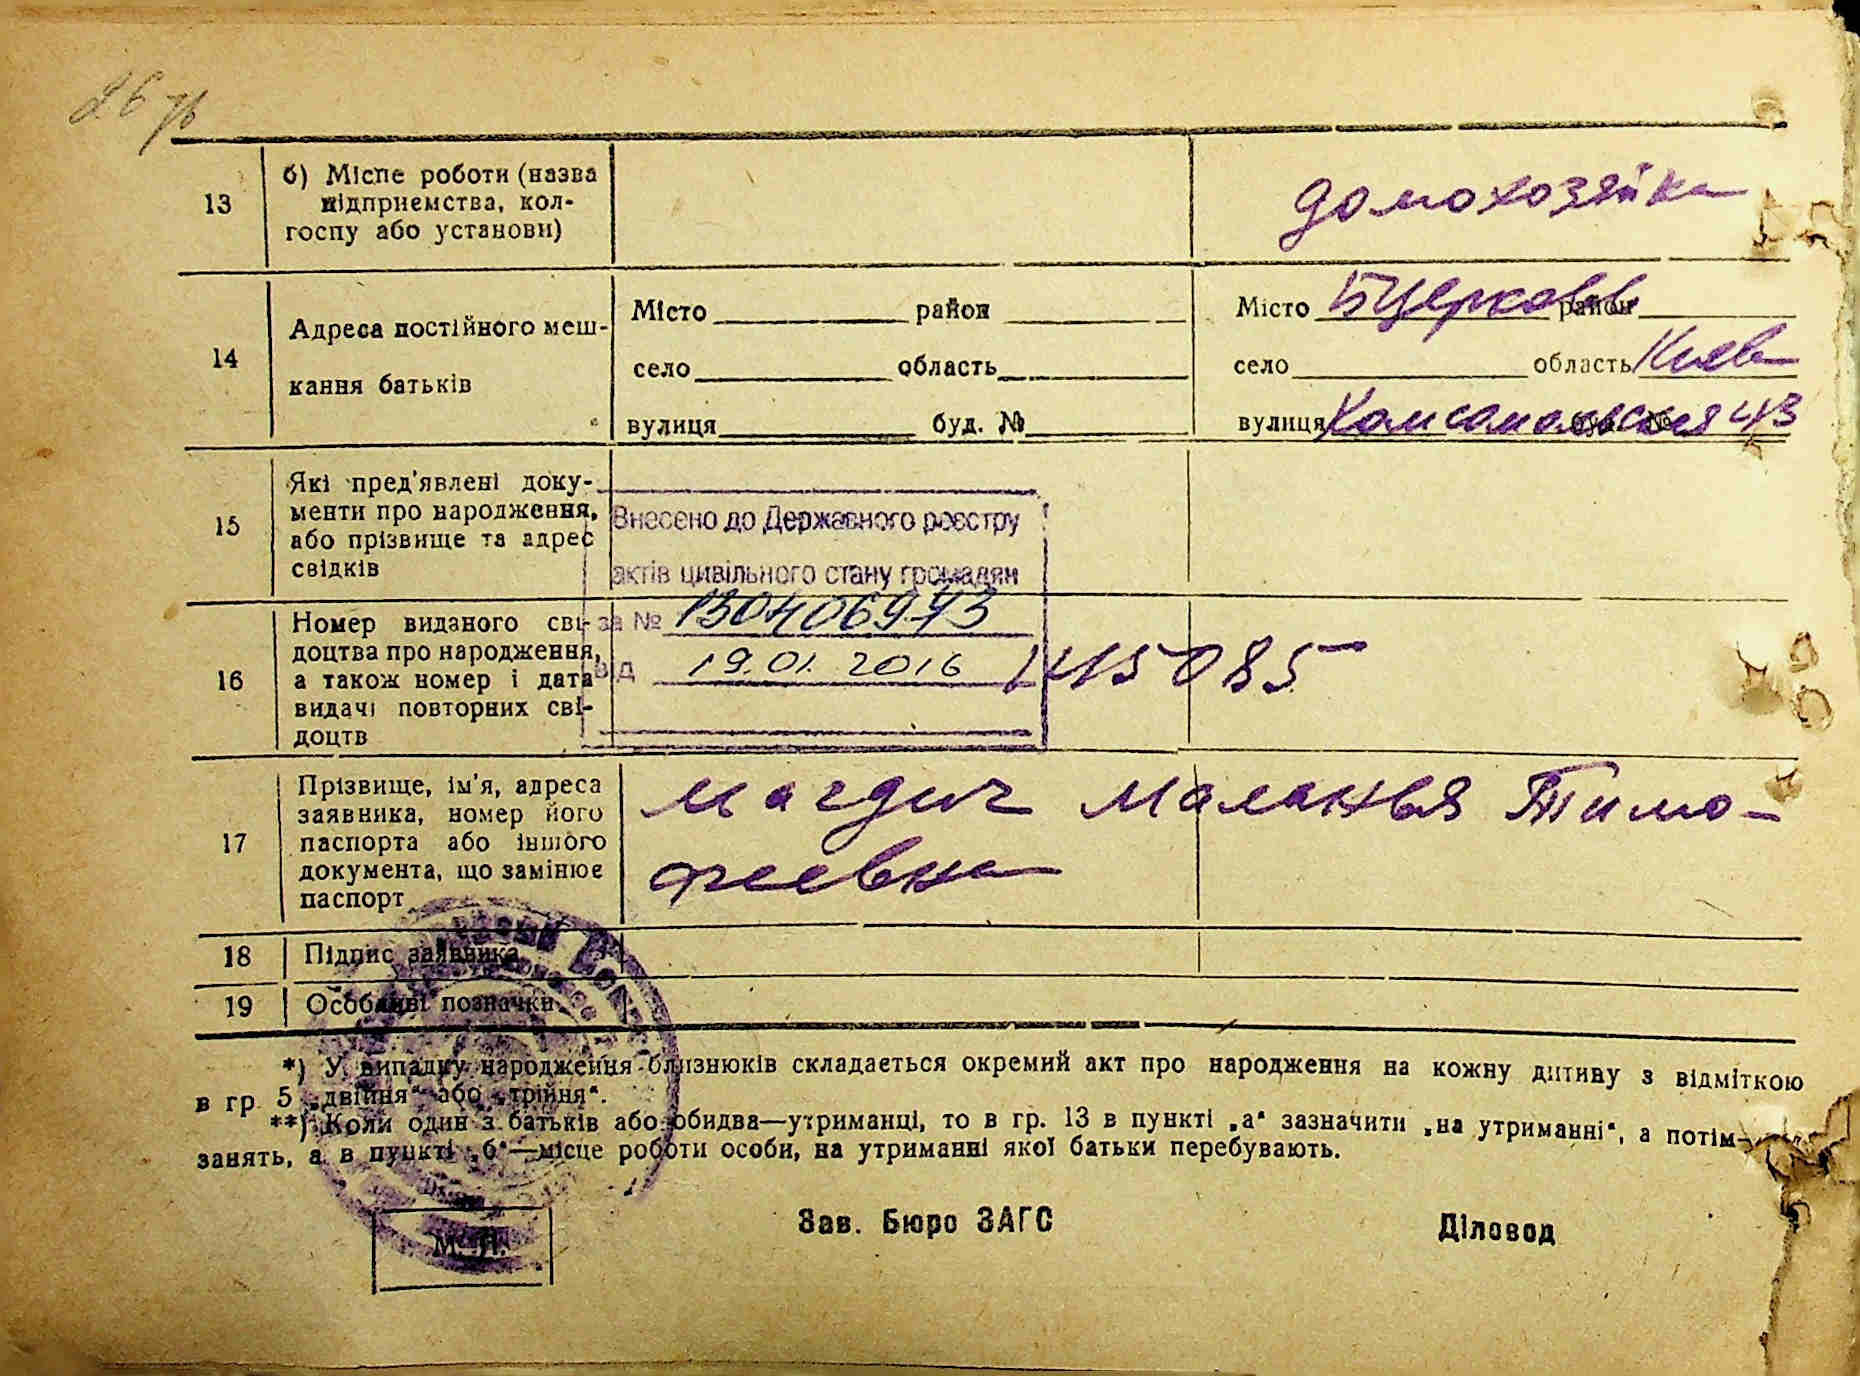 13
б) Місце роботи (назва
підприємства, кол-
госпу або установи)
домохозяйка
14
Адреса постійного меш-
кання батьків
Місто район
село область
вулиця буд. №
Місто Бцерковь район
село область Киев
вулиця Комсомольская 43
15
Які пред'явлені доку-
менти про народження,
або прізвище та адрес
свідків
Внесено до Державного реєстру
актів цивільного стану громадян
за № 130406973
від 19.01.2016
16
Номер виданого сві-
доцтва про народження,
а також номер і дата
видачі повторних сві-
доцтв
145085
17
Прізвище, ім'я, адреса
заявника, номер його
паспорта або іншого
документа, що замінює
паспорт
Магдич Маланья Тимо-
феевна
18
Підпис заявника
19
Особливі позначки
*) У випадку народження близнюків складається окремий акт про народження на кожну дитину з відміткою
в гр 5 „двійня“ або „трійня“.
**) Коли один з батьків або обидва—утриманці, то в гр. 13 в пункті „а“ зазначити „на утриманні“, а потім—
занять, а в пункті „б“—місце роботи особи, на утриманні якої батьки перебувають.
М. П.
Зав. Бюро ЗАГС
Діловод